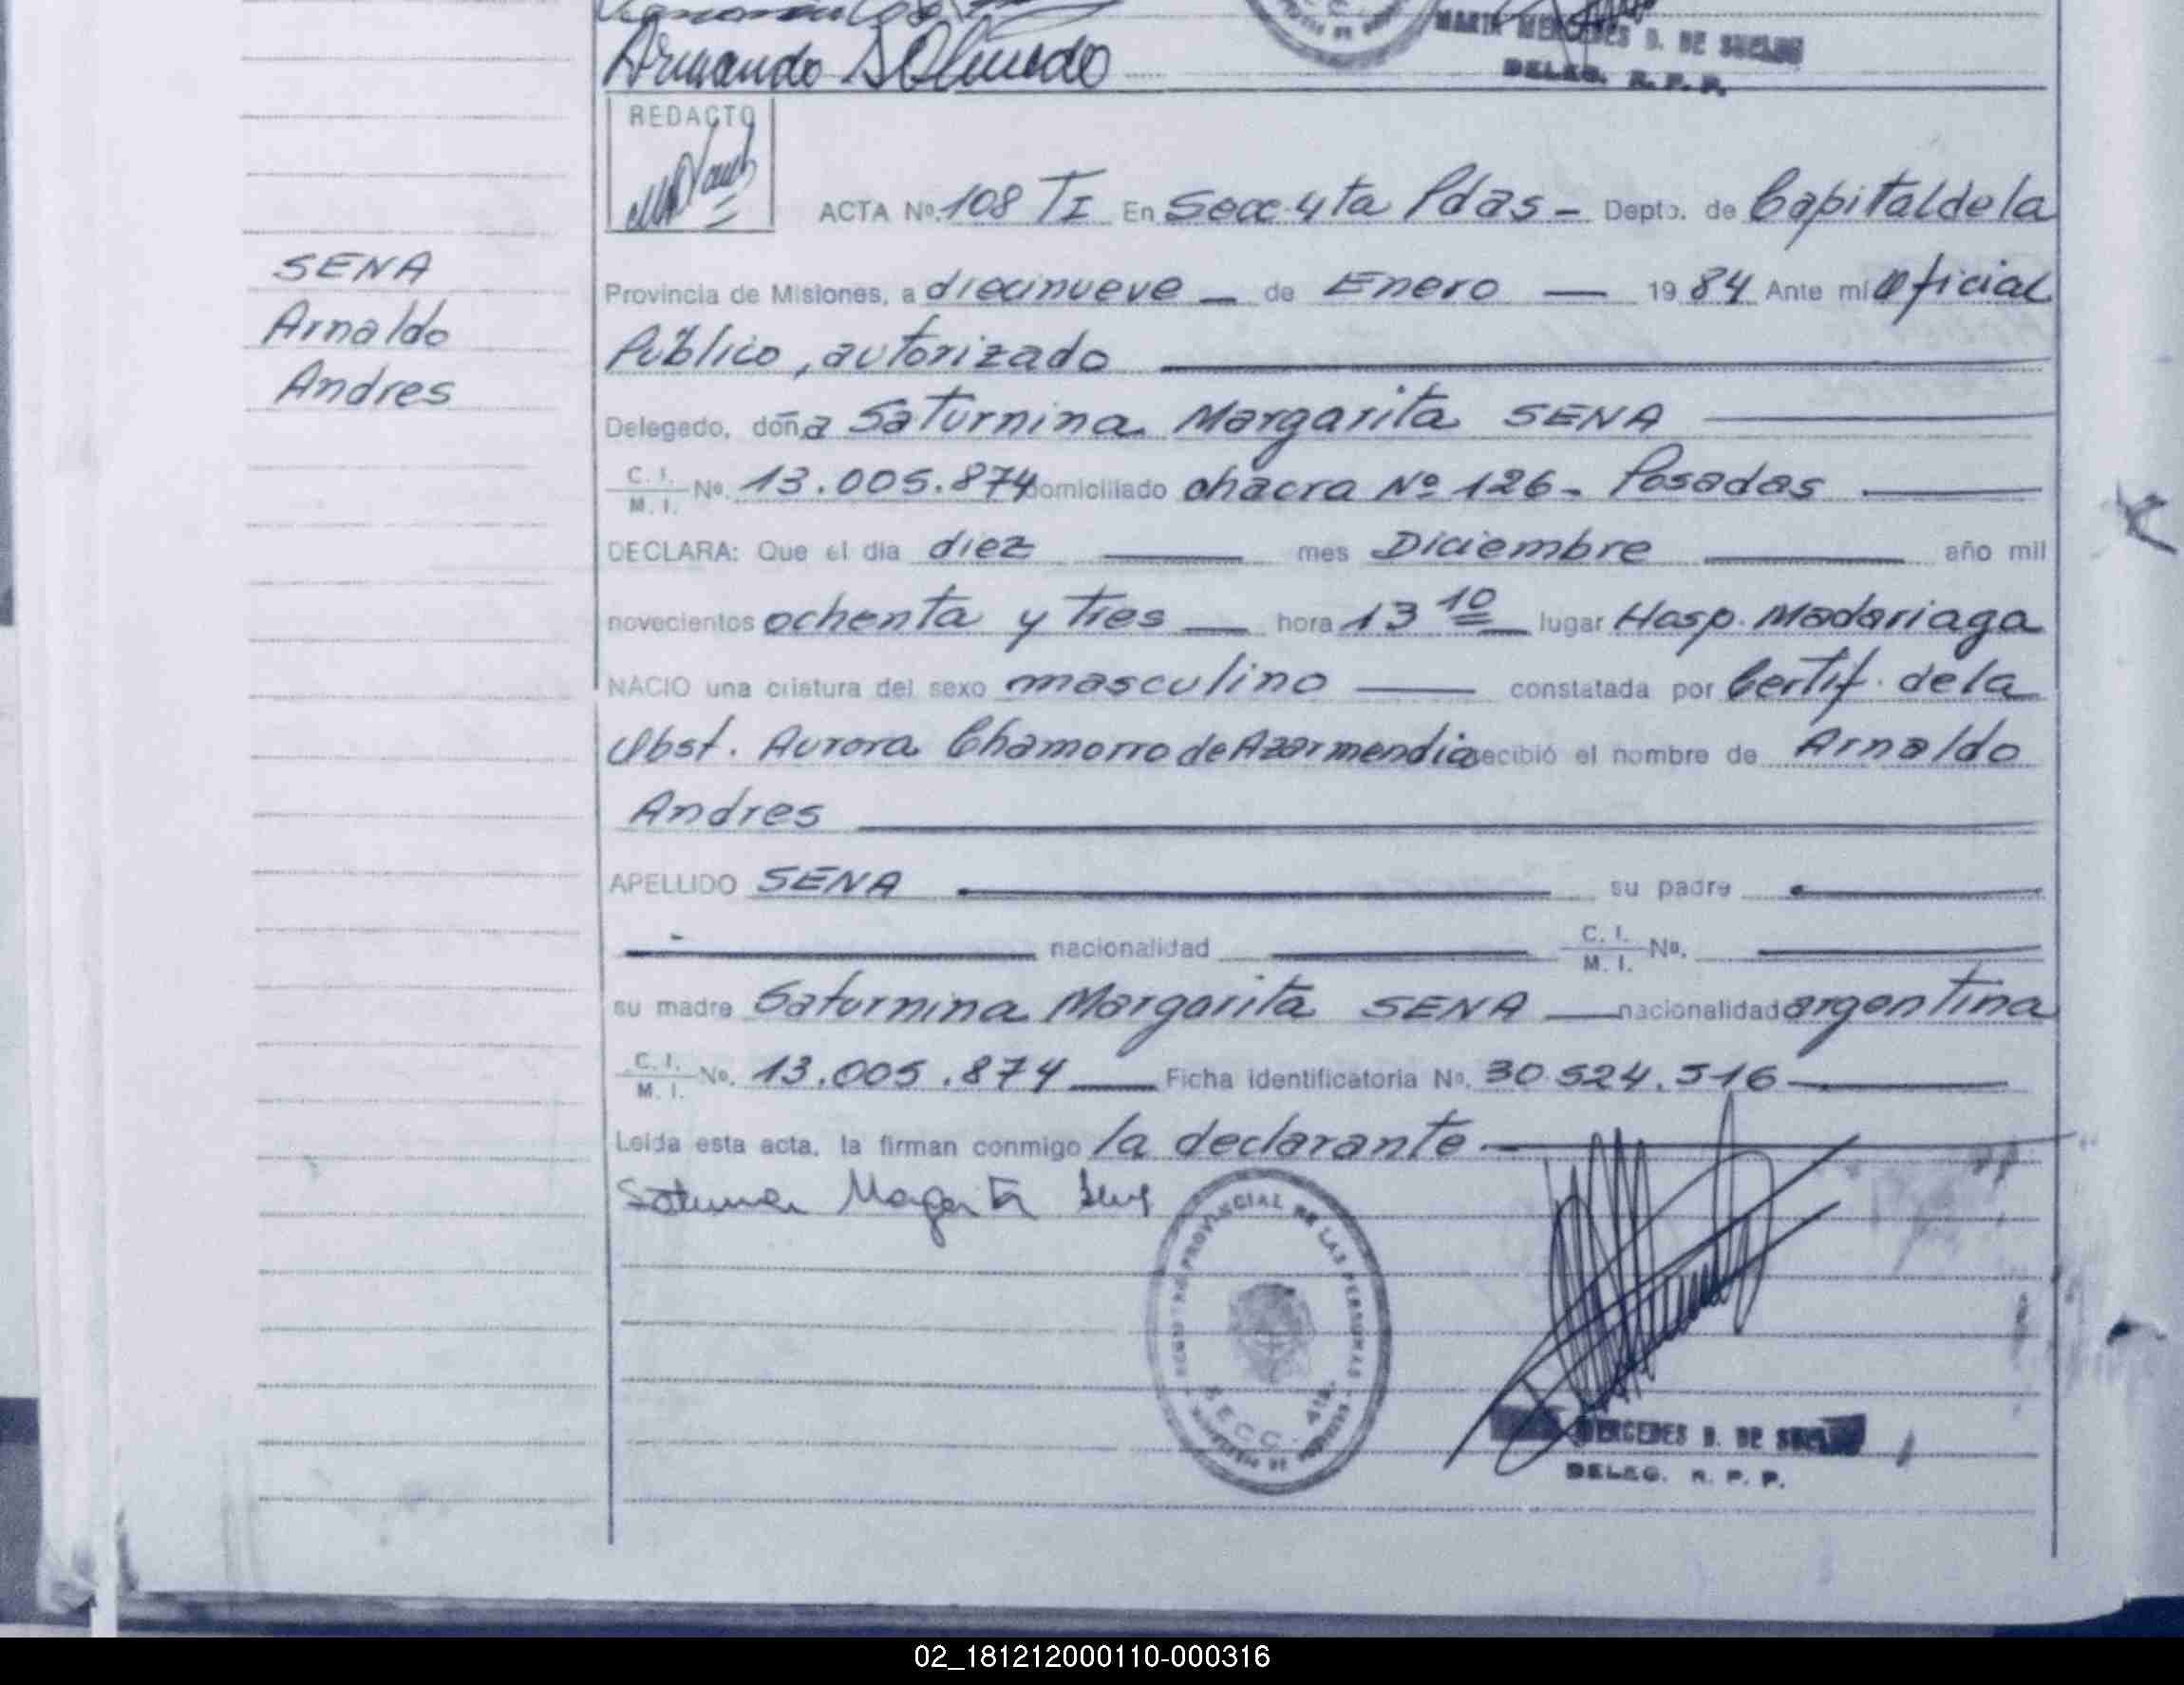 Armando D Olmedo
MARIA MERCEDES D. DE SUELDO
DELEG. R. P. P.
REDACTO
ACTA Nº 108 TI En Secc 4ta Pdas - Depto. de Capital de la
SENA
Arnaldo
Andres
Provincia de Misiones, a diecinueve de Enero 1984 Ante mí Oficial
Público, autorizado
Delegado, doña Saturnina Margarita SENA
C. I. / M. I. Nº 13.005.874 domiciliado chacra Nº 126 - Posadas
DECLARA: Que el día diez mes Diciembre año mil
novecientos ochenta y tres hora 13 10 lugar Hosp. Madariaga
NACIO una criatura del sexo masculino constatada por Certif. de la
Obst. Aurora Chamorro de Azarmendia recibió el nombre de Arnaldo
Andres
APELLIDO SENA su padre
nacionalidad C. I. / M. I. Nº.
su madre Saturnina Margarita SENA nacionalidad argentina
C. I. / M. I. Nº. 13.005.874 Ficha identificatoria Nº. 30.524.516
Leida esta acta, la firman conmigo la declarante
Saturnina Margarita Sena
REGISTRO PROVINCIAL DE LAS PERSONAS
SECC. 4ta.
MERCEDES D. DE SUELDO
DELEG. R. P. P.
02_181212000110-000316